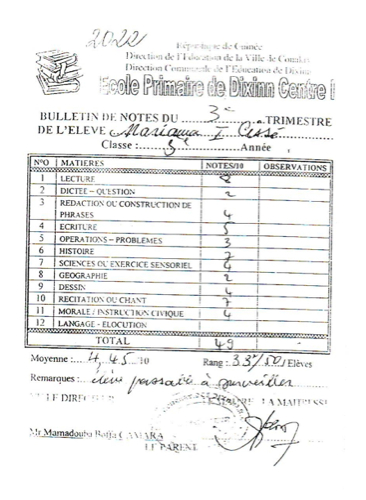 2022
République de Guinée
Direction de l'Education de la Ville de Conakry
Direction Communale de l'Education de Dixinn
Ecole Primaire de Dixinn Centre I
BULLETIN DE NOTES DU 3e TRIMESTRE
DE L'ELEVE Mariama I Cissé
Classe : 3e Année
N°O MATIERES NOTES/10 OBSERVATIONS
1 LECTURE
2 DICTEE – QUESTION 2
3 REDACTION OU CONSTRUCTION DE PHRASES 4
4 ECRITURE 5
5 OPERATIONS – PROBLEMES 3
6 HISTOIRE 7
7 SCIENCES OU EXERCICE SENSORIEL 4
8 GEOGRAPHIE 2
9 DESSIN 4
10 RECITATION OU CHANT 7
11 MORALE / INSTRUCTION CIVIQUE 4
12 LANGAGE - ELOCUTION
TOTAL 49
Moyenne : 4,45/10 Rang : 33e/50/Elèves
Remarques : élève passable à surveiller
LE DIRECTEUR LA MAITRESSE
Mr Mamadouba CAMARA
LE PARENT